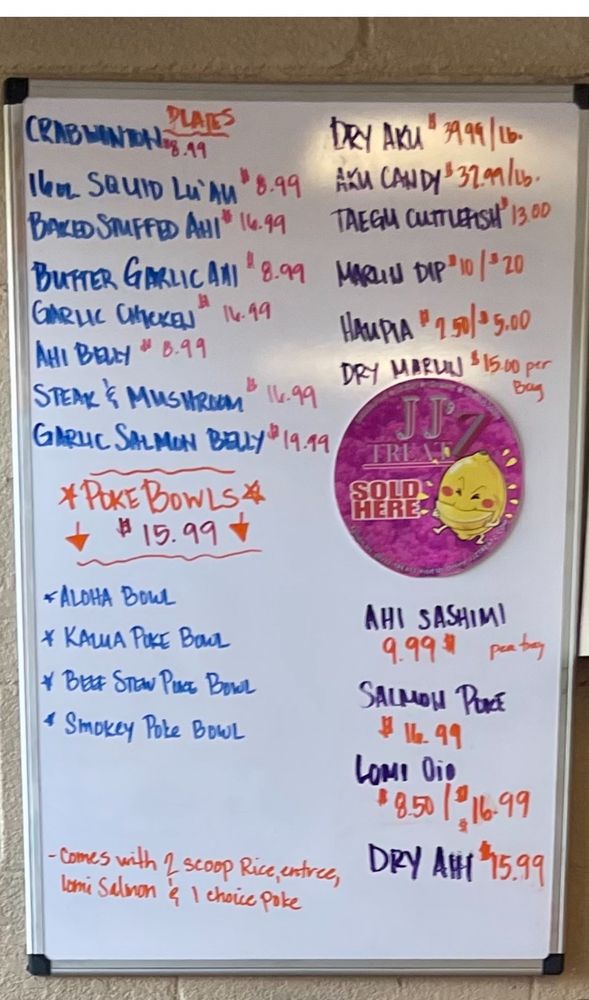 PLATES
CRAB WONTON $8.99
16oz SQUID LU'AU $8.99
BAKED STUFFED AHI $16.99
BUTTER GARLIC AHI $8.99
GARLIC CHICKEN $16.99
AHI BELLY $8.99
STEAK & MUSHROOM $16.99
GARLIC SALMON BELLY $19.99
POKE BOWLS
$15.99
ALOHA BOWL
KALUA POKE BOWL
BEEF STEW POKE BOWL
SMOKEY POKE BOWL
- Comes with 2 scoop Rice, entree,
lomi Salmon & 1 choice poke
DRY AKU $39.99/lb.
AKU CANDY $37.99/lb.
TAEGU CUTTLEFISH $13.00
MARLIN DIP $10/$20
HAUPIA $2.50/$5.00
DRY MARLIN $15.00 per
Bag
JJ'Z
TREATZ
SOLD
HERE
AHI SASHIMI
9.99$ per tray
SALMON POKE
$16.99
LOMI OIO
$8.50/$16.99
DRY AHI $15.99